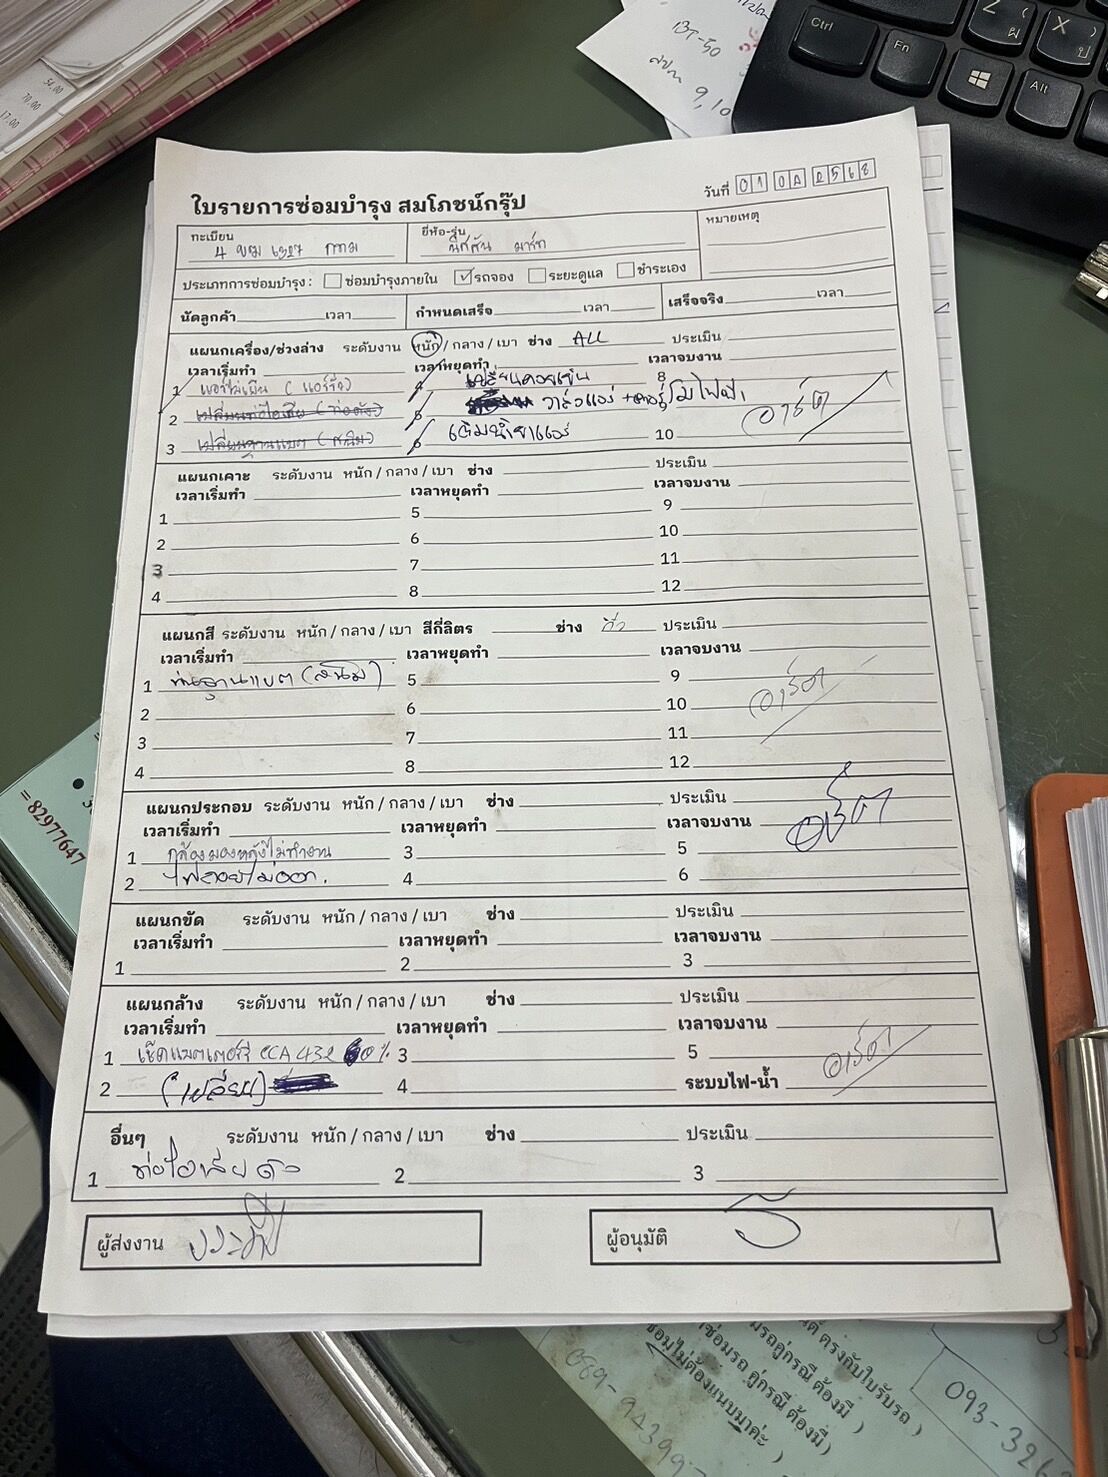 54.00
70.00
17.00
9,10
Ctrl
Fn
Alt
Z
X
ใบรายการซ่อมบำรุง สมโภชน์กรุ๊ป
วันที่ 01 0A 2568
ทะเบียน 4 ขฒ 6327 กทม
ยี่ห้อ-รุ่น นิสสัน มาร์ท
หมายเหตุ
ประเภทการซ่อมบำรุง : ซ่อมบำรุงภายใน ✓ รถจอง ระยะดูแล ชำระเอง
นัดลูกค้า เวลา
กำหนดเสร็จ เวลา
เสร็จจริง เวลา
แผนกเครื่อง/ช่วงล่าง ระดับงาน หนัก / กลาง / เบา ช่าง ALL ประเมิน
เวลาเริ่มทำ เวลาหยุดทำ เวลาจบงาน
1 แอร์ไม่เย็น (แอร์รั่ว)
2 เปลี่ยนท่อไอเสีย (ท่อดัง)
3 เปลี่ยนฐานแบต (สนิม)
4 เปลี่ยนคอยเย็น
5 วาล์วแอร์
6 เติมน้ำยาแอร์
8
10
แผนกเคาะ ระดับงาน หนัก / กลาง / เบา ช่าง ประเมิน
เวลาเริ่มทำ เวลาหยุดทำ เวลาจบงาน
1 5 9
2 6 10
3 7 11
4 8 12
แผนกสี ระดับงาน หนัก / กลาง / เบา สีกี่ลิตร ช่าง ประเมิน
เวลาเริ่มทำ เวลาหยุดทำ เวลาจบงาน
1 พ่นฐานแบต (สนิม) 5 9
2 6 10
3 7 11
4 8 12
แผนกประกอบ ระดับงาน หนัก / กลาง / เบา ช่าง ประเมิน
เวลาเริ่มทำ เวลาหยุดทำ เวลาจบงาน
1 กล้องมองหลังไม่ทำงาน 3 5
2 ไฟถอยไม่ออก. 4 6
แผนกขัด ระดับงาน หนัก / กลาง / เบา ช่าง ประเมิน
เวลาเริ่มทำ เวลาหยุดทำ เวลาจบงาน
1 2 3
แผนกล้าง ระดับงาน หนัก / กลาง / เบา ช่าง ประเมิน
เวลาเริ่มทำ เวลาหยุดทำ เวลาจบงาน
1 เช็คแบตเตอรี่ CCA 432 60% 3 5
2 (เปลี่ยน) 4 ระบบไฟ-น้ำ
อื่นๆ ระดับงาน หนัก / กลาง / เบา ช่าง ประเมิน
1 ท่อไอเสียดัง 2 3
ผู้ส่งงาน
ผู้อนุมัติ
= 82977647
ตรงกับใบรับรถ )
คู่กรณี ต้องมี )
ซ่อมรถ คู่กรณี ต้องมี)
ซ่อมไม่ต้องแนบมาค่ะ )
089-94399
093-326